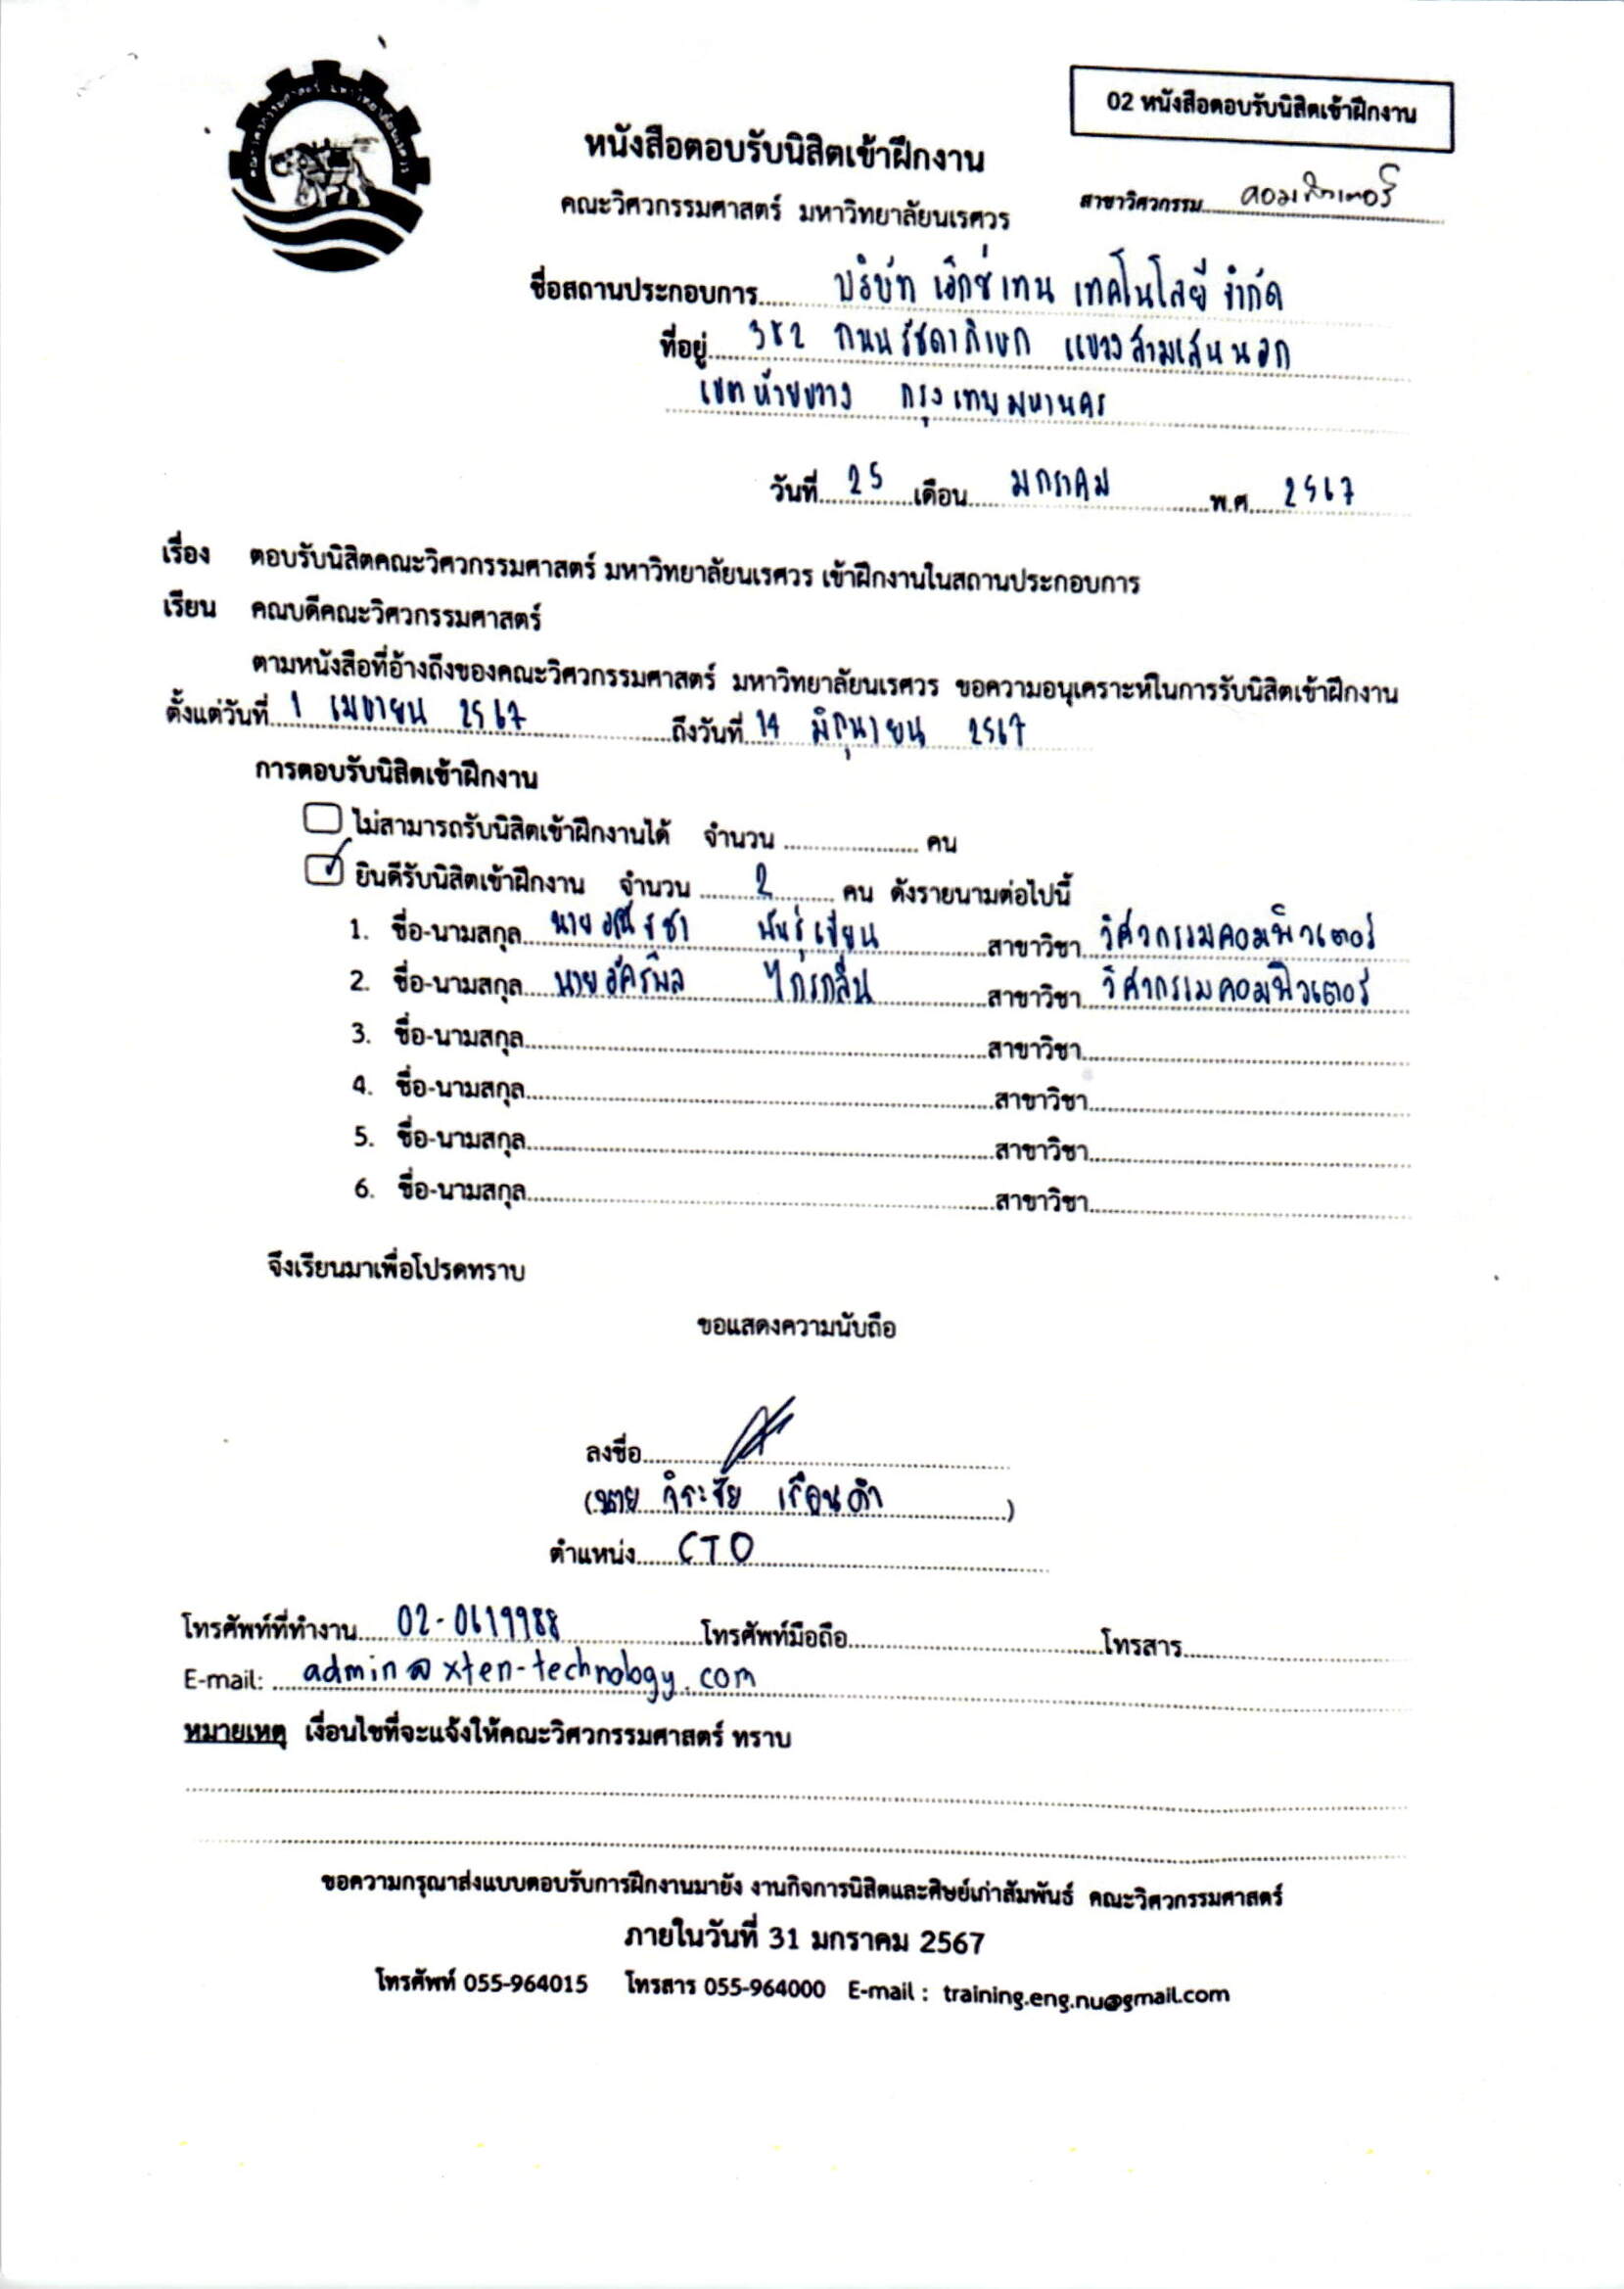 คณะวิศวกรรมศาสตร์ มหาวิทยาลัยนเรศวร
02 หนังสือตอบรับนิสิตเข้าฝึกงาน
หนังสือตอบรับนิสิตเข้าฝึกงาน
สาขาวิศวกรรม คอมพิวเตอร์
คณะวิศวกรรมศาสตร์ มหาวิทยาลัยนเรศวร
ชื่อสถานประกอบการ บริษัท เอ็กซ์เทน เทคโนโลยี จำกัด
ที่อยู่ 382 ถนนรัชดาภิเษก แขวงสามเสนนอก
เขตห้วยขวาง กรุงเทพมหานคร
วันที่ 25 เดือน มกราคม พ.ศ. 2567
เรื่อง ตอบรับนิสิตคณะวิศวกรรมศาสตร์ มหาวิทยาลัยนเรศวร เข้าฝึกงานในสถานประกอบการ
เรียน คณบดีคณะวิศวกรรมศาสตร์
ตามหนังสือที่อ้างถึงของคณะวิศวกรรมศาสตร์ มหาวิทยาลัยนเรศวร ขอความอนุเคราะห์ในการรับนิสิตเข้าฝึกงาน
ตั้งแต่วันที่ 1 เมษายน 2567 ถึงวันที่ 14 มิถุนายน 2567
การตอบรับนิสิตเข้าฝึกงาน
ไม่สามารถรับนิสิตเข้าฝึกงานได้ จำนวน ........ คน
✓ ยินดีรับนิสิตเข้าฝึกงาน จำนวน 2 คน ดังรายนามต่อไปนี้
1. ชื่อ-นามสกุล นาย พันธุ์เขียน สาขาวิชา วิศวกรรมคอมพิวเตอร์
2. ชื่อ-นามสกุล นายอัครพล ไกรกลิ่น สาขาวิชา วิศวกรรมคอมพิวเตอร์
3. ชื่อ-นามสกุล ........ สาขาวิชา ........
4. ชื่อ-นามสกุล ........ สาขาวิชา ........
5. ชื่อ-นามสกุล ........ สาขาวิชา ........
6. ชื่อ-นามสกุล ........ สาขาวิชา ........
จึงเรียนมาเพื่อโปรดทราบ
ขอแสดงความนับถือ
ลงชื่อ ........
(นาย จิระชัย เรือนคำ)
ตำแหน่ง CTO
โทรศัพท์ที่ทำงาน 02-0619988 โทรศัพท์มือถือ ........ โทรสาร ........
E-mail: admin@xten-technology.com
หมายเหตุ เงื่อนไขที่จะแจ้งให้คณะวิศวกรรมศาสตร์ ทราบ
ขอความกรุณาส่งแบบตอบรับการฝึกงานมายัง งานกิจการนิสิตและศิษย์เก่าสัมพันธ์ คณะวิศวกรรมศาสตร์
ภายในวันที่ 31 มกราคม 2567
โทรศัพท์ 055-964015 โทรสาร 055-964000 E-mail : training.eng.nu@gmail.com